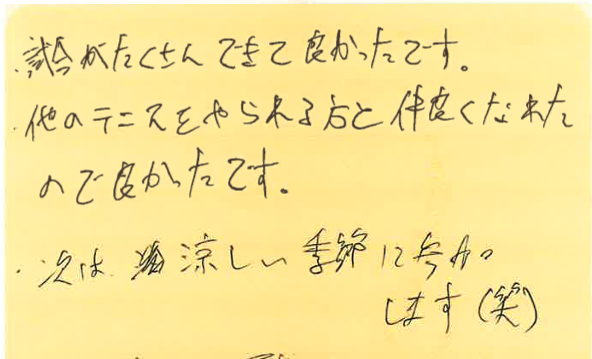 ・試合がたくさんできて良かったです。
・他のテニスをやられる方と仲良くなれた
ので良かったです。
・次は、涼しい季節に参加
します(笑)